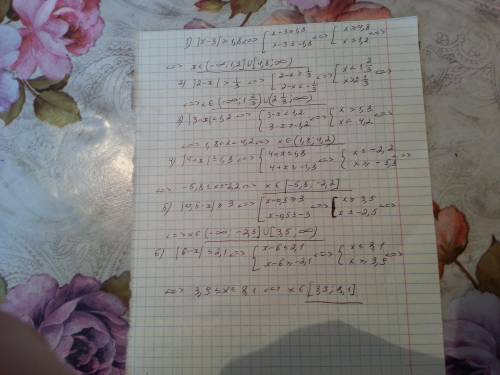 1) |x-3| ≥ 1,8 <=> [ x-3 ≥ 1,8 x-3 ≤ -1,8 <=> [ x ≥ 4,8 x ≤ 1,2 <=>
<=> x ∈ (-∞; 1,2] U [4,8; ∞)
2) |2-x| > 1/3 <=> [ 2-x > 1/3 2-x < -1/3 <=> [ x < 1 2/3 x > 2 1/3 <=>
<=> x ∈ (-∞; 1 2/3) U (2 1/3; ∞)
3) |3-x| < 1,2 <=> { 3-x < 1,2 3-x > -1,2 <=> { x > 1,8 x < 4,2 <=>
<=> 1,8 < x < 4,2 <=> x ∈ (1,8; 4,2)
4) |4+x| ≤ 1,8 <=> { 4+x ≤ 1,8 4+x ≥ -1,8 <=> { x ≤ -2,2 x ≥ -5,8 <=>
<=> -5,8 ≤ x ≤ -2,2 <=> x ∈ [-5,8; -2,2]
5) |0,5-x| ≥ 3 <=> [ x-0,5 ≥ 3 x-0,5 ≤ -3 <=> [ x ≥ 3,5 x ≤ -2,5 <=>
<=> x ∈ (-∞; -2,5] U [3,5; ∞)
6) |6-x| ≤ 2,1 <=> { x-6 ≤ 2,1 x-6 ≥ -2,1 <=> { x ≤ 8,1 x ≥ 3,9 <=>
<=> 3,9 ≤ x ≤ 8,1 <=> x ∈ [3,9; 8,1]